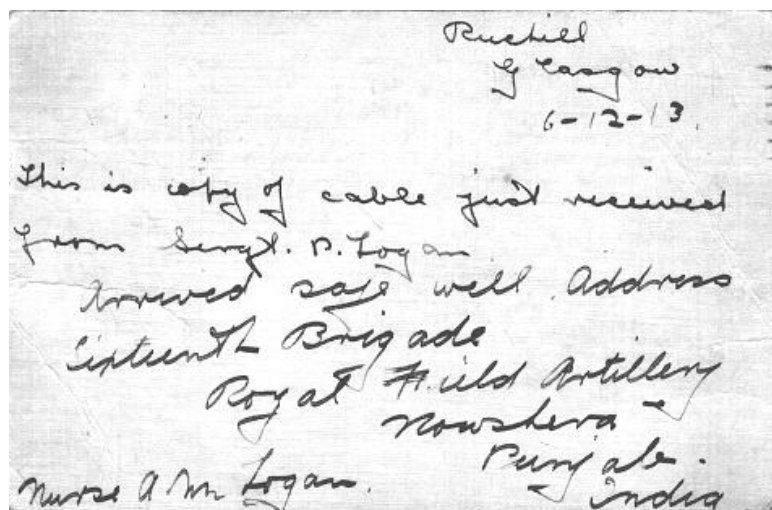 Ruchill
Glasgow
6-12-13.
This is copy of cable just received
from Sergt. P. Logan
Arrived safe well Address
Sixteenth Brigade
Royal Field Artillery
Nowshera
Punjab.
India
Nurse A Logan.